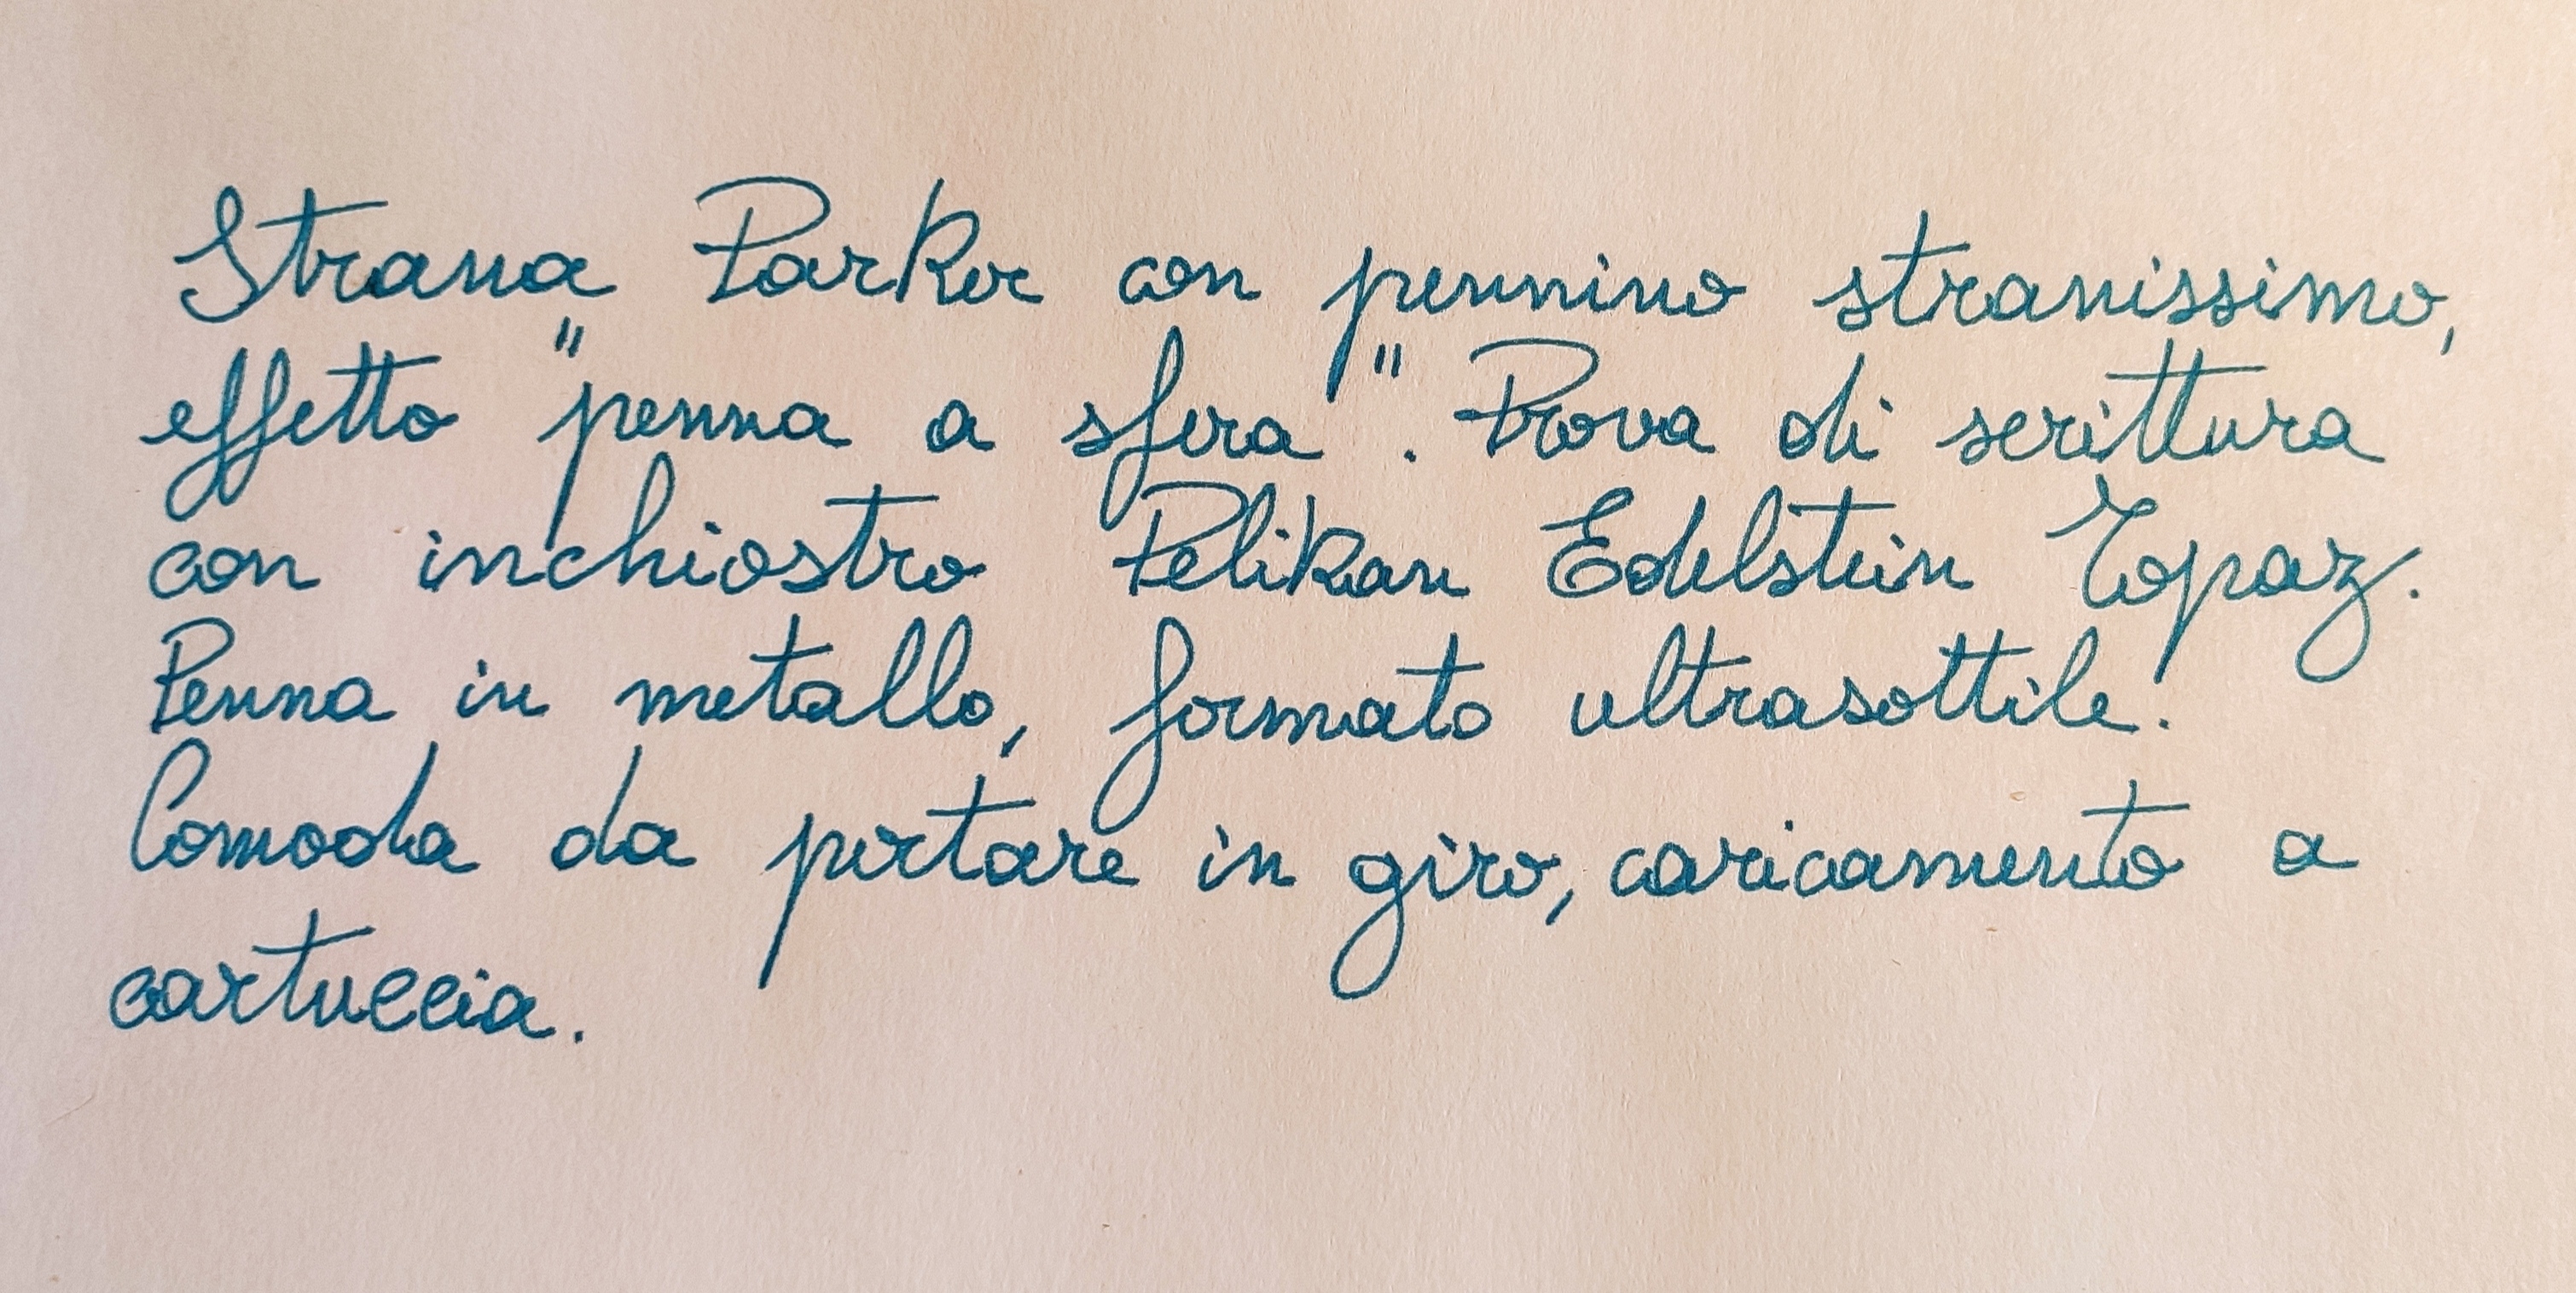 Strana Parker con pennino stranissimo,
effetto "penna a sfera". Prova di scrittura
con inchiostro Pelikan Edelstein Topaz.
Penna in metallo, formato ultrasottile.
Comoda da portare in giro, caricamento a
cartuccia.